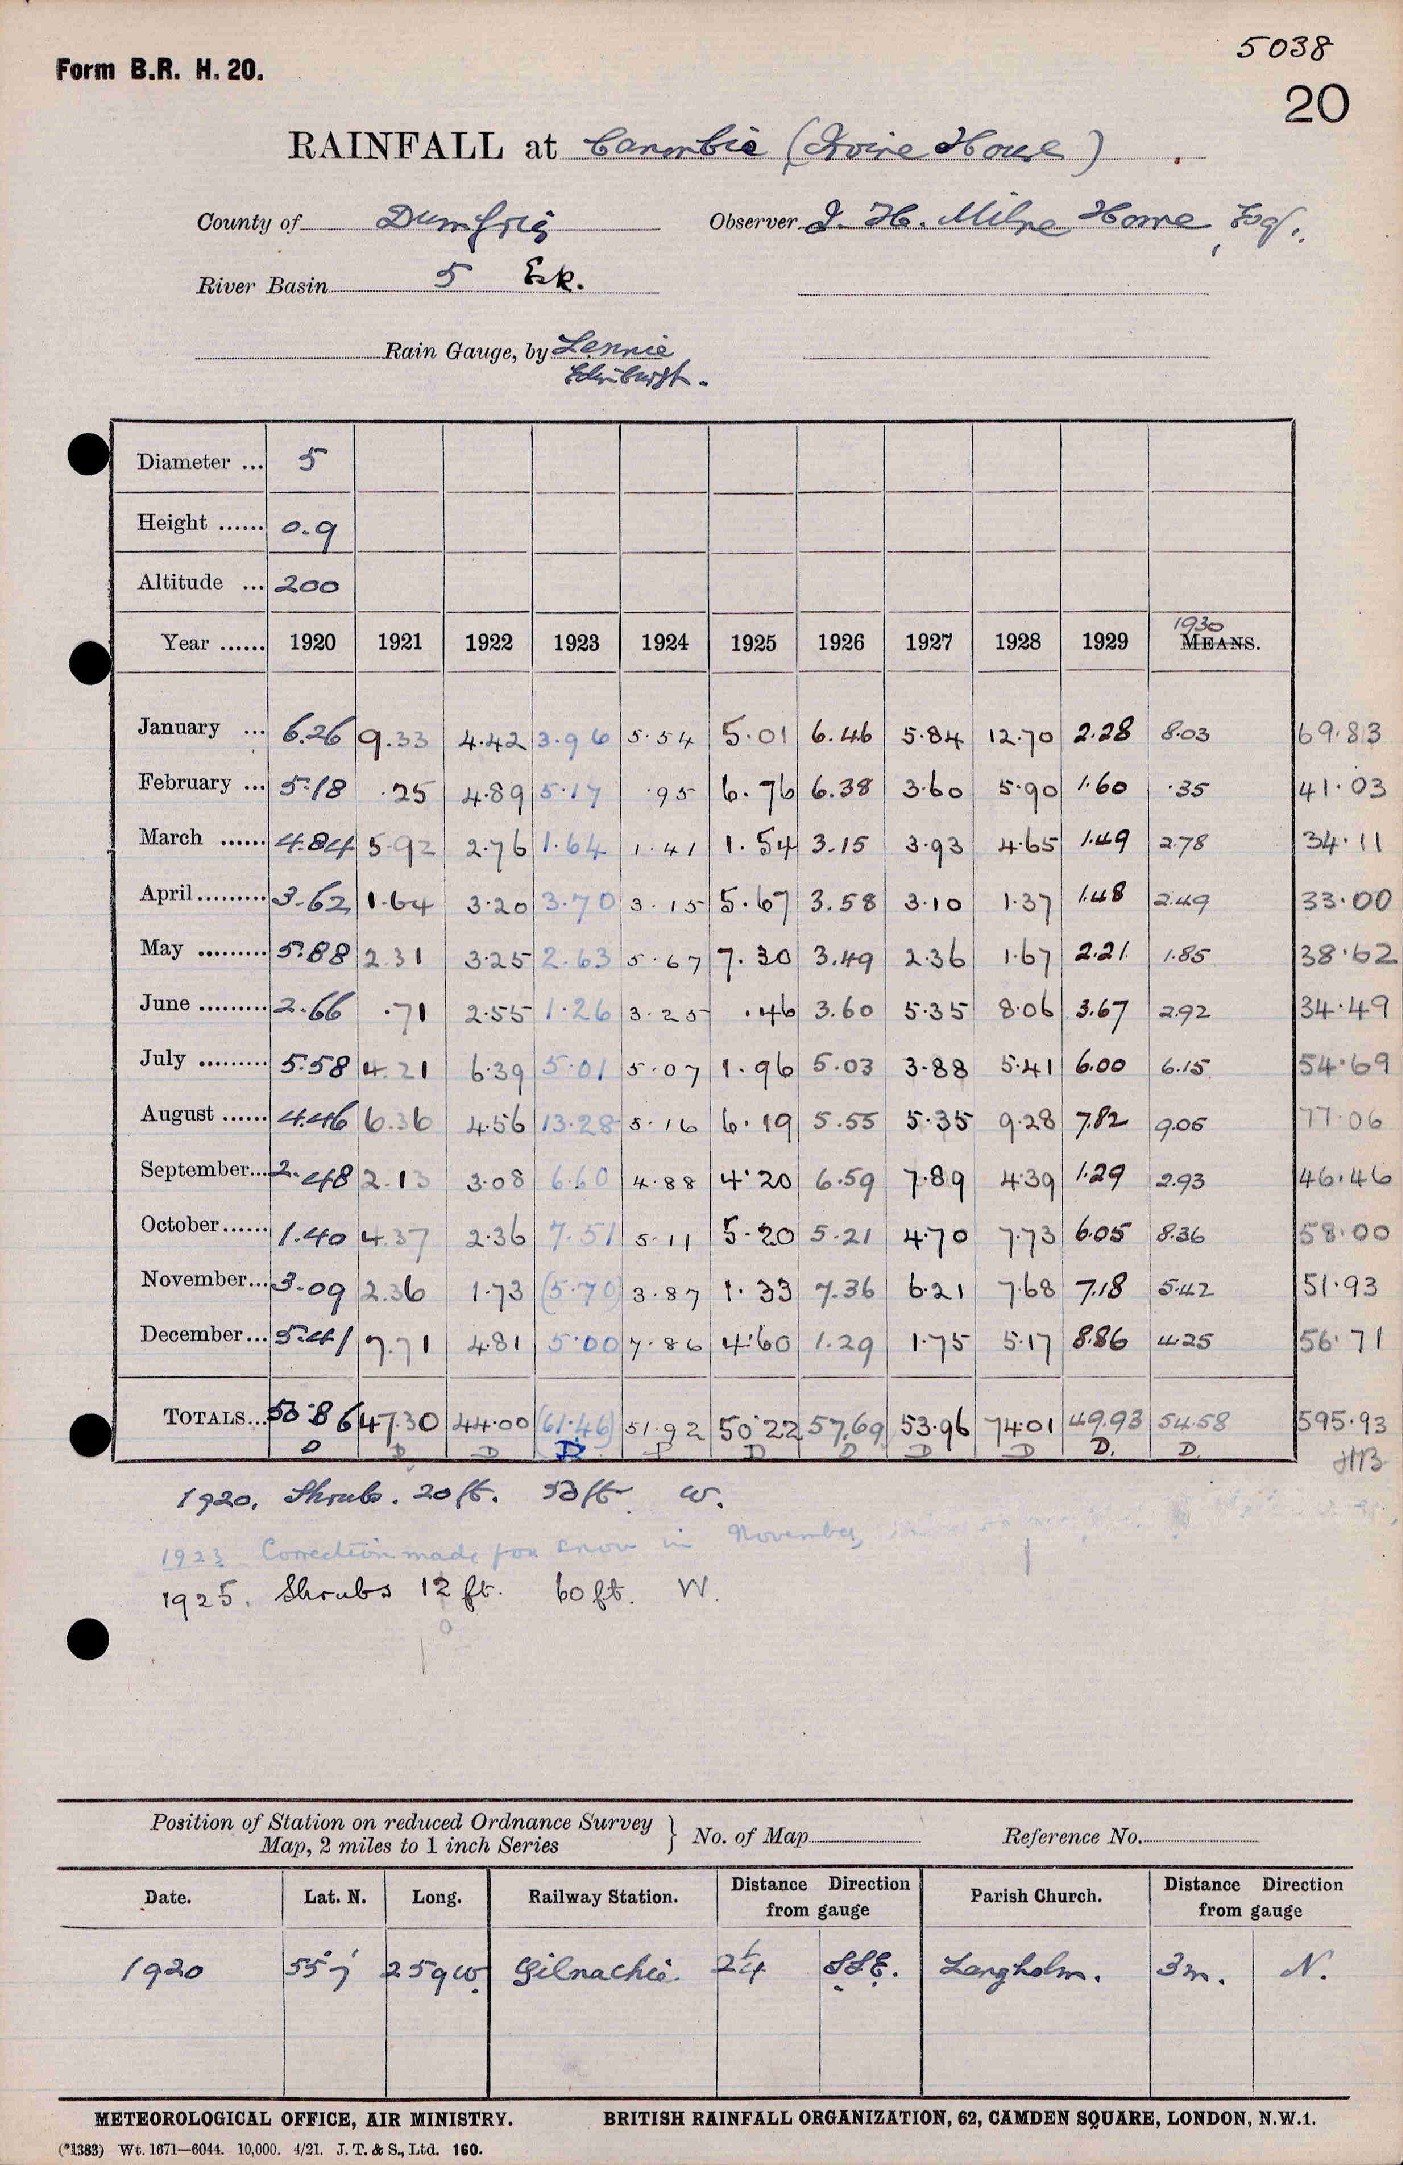 5038
Form B.R. H. 20.
20
RAINFALL at Canonbie (Irvine House)
County of Dumfries Observer J. H. Milne Home, Esq.
River Basin 5 Esk.
Rain Gauge, by Lennie
Edinburgh.
Diameter ... 5
Height ...... 0.9
Altitude ... 200
1930
Year ...... 1920 1921 1922 1923 1924 1925 1926 1927 1928 1929 MEANS.
January ... 6.26 9.33 4.42 3.96 5.54 5.01 6.46 5.84 12.70 2.28 8.03 69.83
February ... 5.18 .25 4.89 5.17 .95 6.76 6.38 3.60 5.90 1.60 .35 41.03
March ...... 4.84 5.92 2.76 1.64 1.41 1.54 3.15 3.93 4.65 1.49 2.78 34.11
April......... 3.62 1.64 3.20 3.70 3.15 5.67 3.58 3.10 1.37 1.48 2.49 33.00
May ......... 5.88 2.31 3.25 2.63 5.67 7.30 3.49 2.36 1.67 2.21 1.85 38.62
June ......... 2.66 .71 2.55 1.26 3.25 .46 3.60 5.35 8.06 3.67 2.92 34.49
July ......... 5.58 4.21 6.39 5.01 5.07 1.96 5.03 3.88 5.41 6.00 6.15 54.69
August ...... 4.46 6.36 4.56 13.28 5.16 6.19 5.55 5.35 9.28 7.82 9.05 77.06
September... 2.48 2.13 3.08 6.60 4.88 4.20 6.59 7.89 4.39 1.29 2.93 46.46
October...... 1.40 4.37 2.36 7.51 5.11 5.20 5.21 4.70 7.73 6.05 8.36 58.00
November... 3.09 2.36 1.73 (5.70) 3.87 1.33 7.36 6.21 7.68 7.18 5.42 51.93
December... 5.41 7.71 4.81 5.00 7.86 4.60 1.29 1.75 5.17 8.86 4.25 56.71
TOTALS... 50.86 47.30 44.00 (61.46) 51.92 50.22 57.69 53.96 74.01 49.93 54.58 595.93
D D D D D D D D D D. D.
1920. Shrubs. 20 ft. 53 ft. W.
1923 Correction made for snow in November,
1925. Shrubs 12 ft. 60 ft. W.
Position of Station on reduced Ordnance Survey
Map, 2 miles to 1 inch Series } No. of Map Reference No.
Date. Lat. N. Long. Railway Station. Distance Direction from gauge Parish Church. Distance Direction from gauge
1920 55° 7' 2 59 W. Gilnockie. 2¼ SSE. Langholm. 3m. N.
METEOROLOGICAL OFFICE, AIR MINISTRY. BRITISH RAINFALL ORGANIZATION, 62, CAMDEN SQUARE, LONDON, N.W.1.
(*1383) Wt. 1671—6044. 10,000. 4/21. J. T. & S., Ltd. 160.